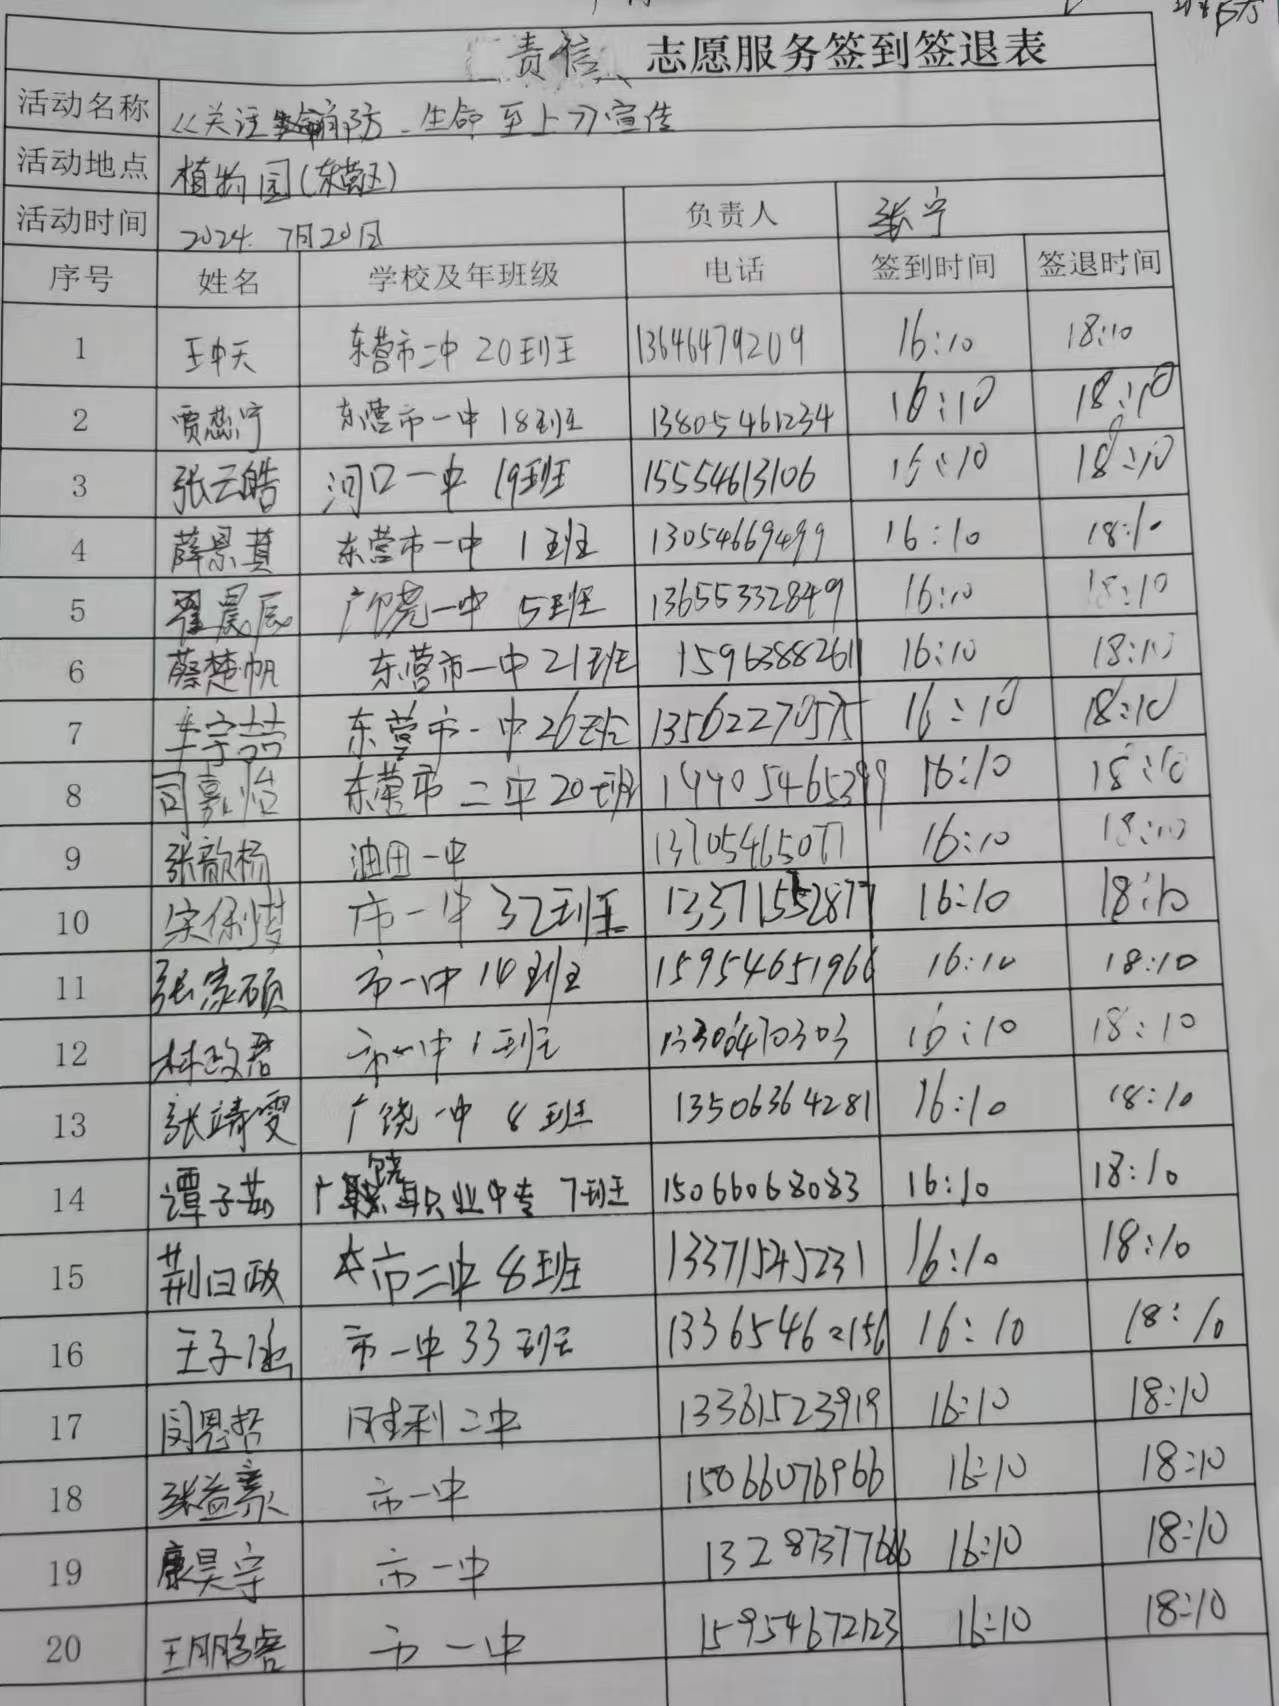 责信 志愿服务签到签退表
活动名称 《关注消防、生命至上》宣传
活动地点 植物园(东营区)
活动时间 2024. 7月20日 负责人 张宁
序号 姓名 学校及年班级 电话 签到时间 签退时间
1 王中天 东营市二中 20班 13646479209 16:10 18:10
2 贾蕊宁 东营市一中 18班 13805461234 16:10 18:10
3 张云皓 河口一中 19班 15554613106 16:10 18:10
4 薛景萁 东营市一中 1班 13054669499 16:10 18:10
5 翟晨辰 广饶一中 5班 13655332849 16:10 18:10
6 蔡楚帆 东营市一中 21班 15963882611 16:10 18:10
7 车宇喆 东营市一中 26班 13562270575 16:10 18:10
8 司嘉怡 东营市二中 20班 16:10 18:10
9 张歆杨 油田一中 13705465077 16:10 18:10
10 市一中 32班 13371552877 16:10 18:10
11 张家硕 市一中 10班 15954651966 16:10 18:10
12 林政君 市一中 1班 13306470303 16:10 18:10
13 张靖雯 广饶一中 8班 13506364281 16:10 18:10
14 谭子茹 广饶职业中专 7班 15066068083 16:10 18:10
15 荆曰政 市二中 8班 13371545231 16:10 18:10
16 王子涵 市一中 33班 13365462156 16:10 18:10
17 闫恩哲 胜利二中 13361523919 16:10 18:10
18 张益豪 市一中 15066076966 16:10 18:10
19 康昊宇 市一中 16:10 18:10
20 王鹏睿 市一中 15954672123 16:10 18:10